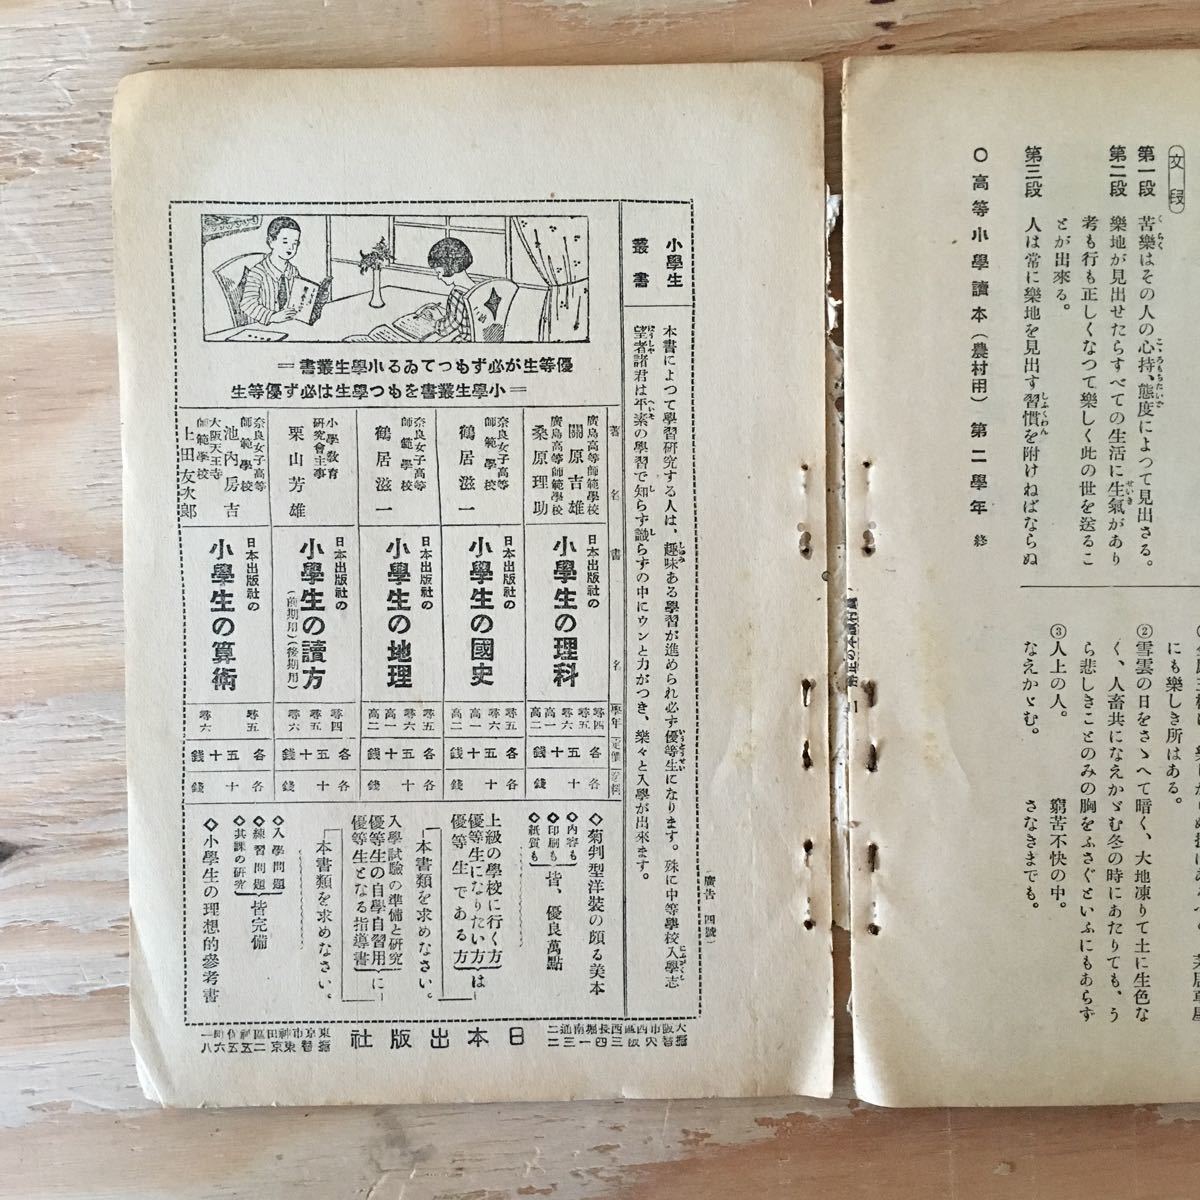 文段
第一段 苦樂はその人の心持、態度によつて見出さる。
第二段 樂地が見出せたらすべての生活に生氣があり
考も行も正しくなつて樂しく此の世を送るこ
とが出來る。
第三段 人は常に樂地を見出す習慣を附けねばならぬ
〇高等小學讀本(農村用)第二學年 終
にも樂しき所はある。
②雪雲の日をさゝへて暗く、大地凍りて土に生色な
く、人畜共になえかゞむ冬の時にあたりても、う
ら悲しきことのみ胸をふさぐといふにもあらず
③人上の人。 窮苦不快の中。
なえかゞむ。 さなきまでも。
廣告 四號
小學生
叢書
本書によつて學習研究する人は、趣味ある學習が進められ必ず優等生になります。殊に中等學校入學志
望者諸君は平素の學習で知らず識らずの中にウンと力がつき、樂々と入學が出來ます。
優等生が必ずもつてゐる小學生叢書＝
＝小學生叢書をもつ學生は必ず優等生
著名 書名 學年 定價
廣島高等師範學校 關原吉雄
廣島高等師範學校 桑原理助
日本出版社の
小學生の理科
尋四 尋五 尋六 高一 高二
各五十錢
各十錢
奈良女子高等師範學校 鶴居滋一
日本出版社の
小學生の國史
尋五 尋六 高一 高二
各五十錢
各十錢
奈良女子高等師範學校 鶴居滋一
日本出版社の
小學生の地理
尋五 尋六 高一 高二
各五十錢
各十錢
小學教育研究會主事 栗山芳雄
日本出版社の
小學生の讀方
(前期用)(後期用)
尋四 尋五 尋六
各五十錢
各十錢
奈良女子高等師範學校 池內房吉
大阪天王寺師範學校 上田友次郎
日本出版社の
小學生の算術
尋五 尋六
各五十錢
各十錢
◇菊判型洋裝の頗る美本
◆內容も
◆印刷も
◆紙質も
皆、優良萬點
上級の學校に行く方
優等生になりたい方は
優等生である方
本書類を求めなさい。
入學試驗の準備と研究
優等生の自學自習用に
優等生となる指導書
本書類を求めなさい。
◆入學問題
◆練習問題
◆其課の研究
皆完備
◇小學生の理想的參考書
日本出版社